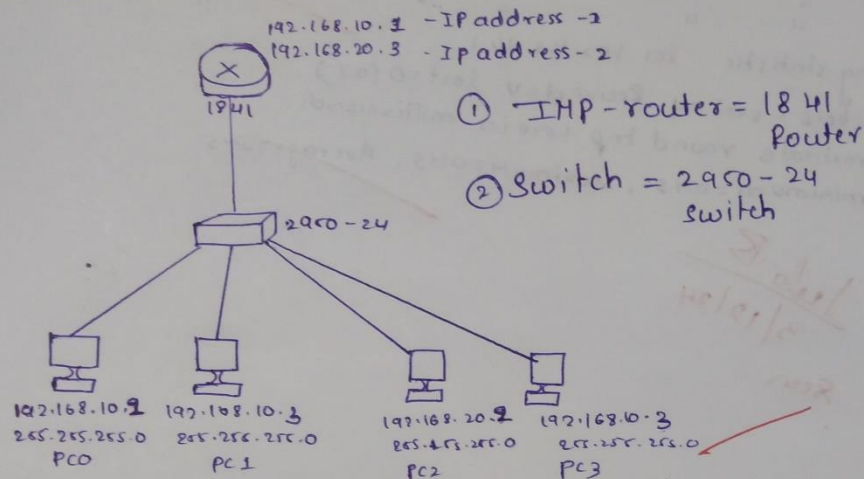 192.168.10.1 - IP address - 1
192.168.20.3 - IP address - 2
1841
① IMP - router = 1841
Router
② Switch = 2950-24
Switch
2950-24
192.168.10.2
255.255.255.0
PC0
192.168.10.3
255.255.255.0
PC1
192.168.20.2
255.255.255.0
PC2
PC3